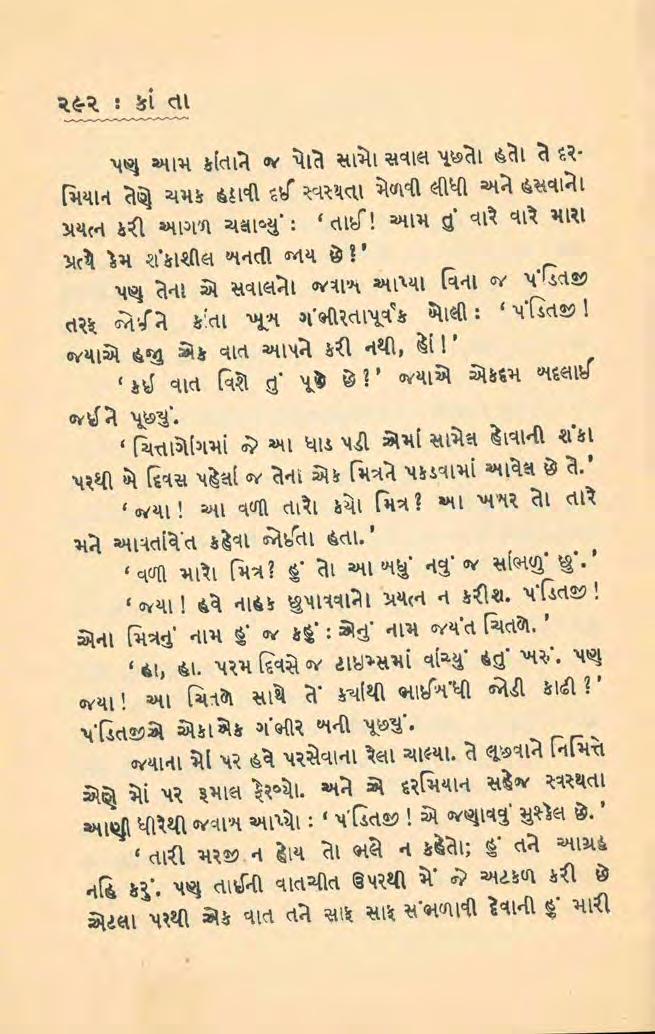 ૨૯૨ : કાં તા
પણ આમ કાંતાને જ પોતે સામો સવાલ પૂછતો હતો તે દર-
મિયાન તેણે ચમક હઠાવી દઈ સ્વસ્થતા મેળવી લીધી અને હસવાનો
પ્રયત્ન કરી આગળ ચલાવ્યું : ‘ તાઈ ! આમ તું વારે વારે મારા
પ્રત્યે કેમ શંકાશીલ બનતી જાય છે ? ’
પણ તેના એ સવાલનો જવાબ આપ્યા વિના જ પંડિતજી
તરફ જોઈને કાંતા ખૂબ ગંભીરતાપૂર્વક બોલી : ‘ પંડિતજી !
જયાએ હજી એક વાત આપને કરી નથી, હોં ! ’
‘ કઈ વાત વિશે તું પૂછે છે ? ’ જયાએ એકદમ બદલાઈ
જઈને પૂછ્યું.
‘ ચિત્તાગોંગમાં જે આ ધાડ પડી એમાં સામેલ હોવાની શંકા
પરથી બે દિવસ પહેલાં જ તેના એક મિત્રને પકડવામાં આવેલ છે તે. ’
‘ જયા ! આ વળી તારો કયો મિત્ર ? આ ખબર તો તારે
મને આવતાંવેંત કહેવા જોઈતા હતા. ’
‘ વળી મારો મિત્ર ? હું તો આ બધું નવું જ સાંભળું છું. ’
‘ જયા ! હવે નાહક છુપાવવાનો પ્રયત્ન ન કરીશ. પંડિતજી !
એના મિત્રનું નામ હું જ કહું : એનું નામ જયંત ચિતળે. ’
‘ હા, હા. પરમ દિવસે જ ટાઇમ્સમાં વાંચ્યું હતું ખરું. પણ
જયા ! આ ચિત્રળે સાથે તેં ક્યાંથી ભાઈબંધી જોડી કાઢી ? ’
પંડિતજીએ એકાએક ગંભીર બની પૂછ્યું.
જયાના મોં પર હવે પરસેવાના રેલા ચાલ્યા. તે લૂછવાને નિમિત્તે
એણે મોં પર રૂમાલ ફેરવ્યો. અને એ દરમિયાન સહેજ સ્વસ્થતા
આણી ધીરેથી જવાબ આપ્યો : ‘ પંડિતજી ! એ જણાવવું મુશ્કેલ છે. ’
‘ તારી મરજી ન હોય તો ભલે ન કહેતો; હું તને આગ્રહ
નહિ કરું. પણ તાઈની વાતચીત ઉપરથી મેં જે અટકળ કરી છે
એટલા પરથી એક વાત તને સાફ સાફ સંભળાવી દેવાની હું મારી